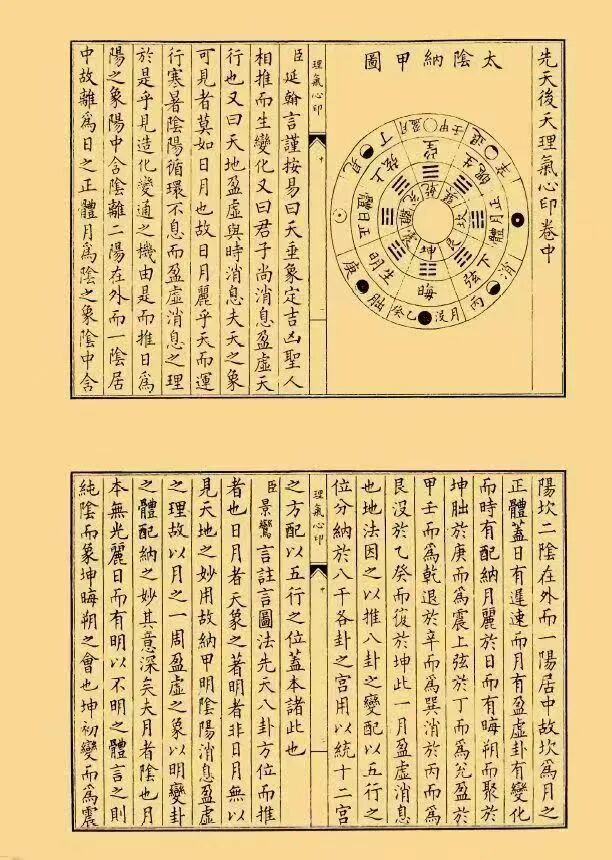 先天後天理氣心印卷中
太陰納甲圖
盈月
甲壬
退
辛
消
丙
月沒
乙癸
朏
庚
丁
望
魄生
月正體
下弦
晦
生明
上弦
乾
坎
艮
坤
理氣心印
臣延翰言謹按易曰天垂象定吉凶聖人
相推而生變化又曰君子尚消息盈虛天
行也又曰天地盈虛與時消息夫天之象
可見者莫如日月也故日月麗乎天而運
行寒暑陰陽循環不息而盈虛消息之理
於是乎見造化變通之機由是而推日爲
陽之象陽中含陰離二陽在外而一陰居
中故離爲日之正體月爲陰之象陰中含
陽坎二陰在外而一陽居中故坎爲月之
正體蓋日有遲速而月有盈虛卦有變化
而時有配納月麗於日而有晦朔而聚於
坤朏於庚而爲震上弦於丁而爲兌盈於
甲壬而爲乾退於辛而爲巽消於丙而爲
艮沒於乙癸而復於坤此一月盈虛消息
也地法因之以推八卦之變配以五行之
位分納於八干各卦之宮用以統十二宮
理氣心印
之方配以五行之位蓋本諸此也
臣景鸞言註言圖法先天八卦方位而推
者也日月者天象之著明者非日月無以
見天地之妙用故納甲明陰陽消息盈虛
之理故以月之一周盈虛之象以明變卦
之體配納之妙其意深矣夫月者陰也月
本無光麗日而有明以不明之體言之則
純陰而象坤晦朔之會也坤初變而爲震